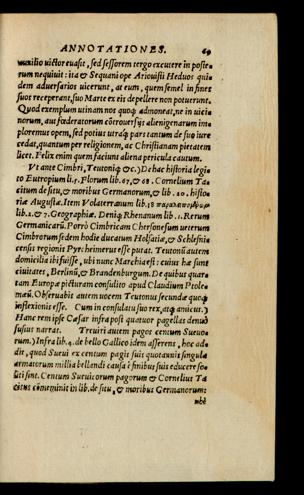 ANNOTATIONES. 69
auxilio uictor euasit, sed sessorem tergo excutere in poste⸗
rum nequiuit: ita & Sequani ope Ariouisti Heduos qui
dem aduersarios uicerunt, at eum, quem semel in fines
suos receperant, suo Marte ex eis depellere non potuerunt.
Quod exemplum utinam nos quoq; admoneat, ne in uici
norum, aut fœderatorum cōtrouersijs alienigenarum im⸗
ploremus opem, sed potius utraq; pars tantum de suo iure
cedat, quantum per religionem, ac Christianam pietatem
licet. Felix enim quem faciunt aliena pericula cautum.
Vt ante Cimbri, Teutoniq; &c.) De hac historia lege
to Eutropium li.5. Florum lib. 67, & 68. Cornelium Ta
citum de situ, & moribus Germanorum, & lib. 20. histo⸗
riæ Augustæ. Item Volaterranum lib. 38
lib.2. & 7. Geographiæ. Deniq; Rhenanum lib. 1. Rerum
Germanicarū. Porrò Cimbricam Chersonesum ueterum
Cimbrorum sedem hodie ducatum Holsatiæ, & Schlesui⸗
censis regionis Pyrcheimerus esse putat. Teutonū autem
domicilia ibi fuisse, ubi nunc Marchia est: cuius hæ sunt
ciuitates, Berlinū, & Brandenburgum. De quibus quar⸗
tam Europæ picturam consulito apud Claudium Ptole⸗
mæū. Obseruabis autem uocem Teutonus secundæ quoq;
inflexionis esse. Cum in consulatu suo rex, atq; amicus.)
Hanc rem ipse Cæsar infra post quatuor pagellas denuò
fusius narrat. Treuiri autem pagos centum Sueuo⸗
rum.) Infra lib. 4. de bello Gallico idem asserens, hoc ad⸗
dit, quod Sueui ex centum pagis suis quotannis singula
armatorum millia bellandi causa è finibus suis educere so⸗
liti sint. Centum Sueuicorum pagorum & Cornelius Ta
citus cōmeminit in lib. de situ, & moribus Germanorum:
ubi